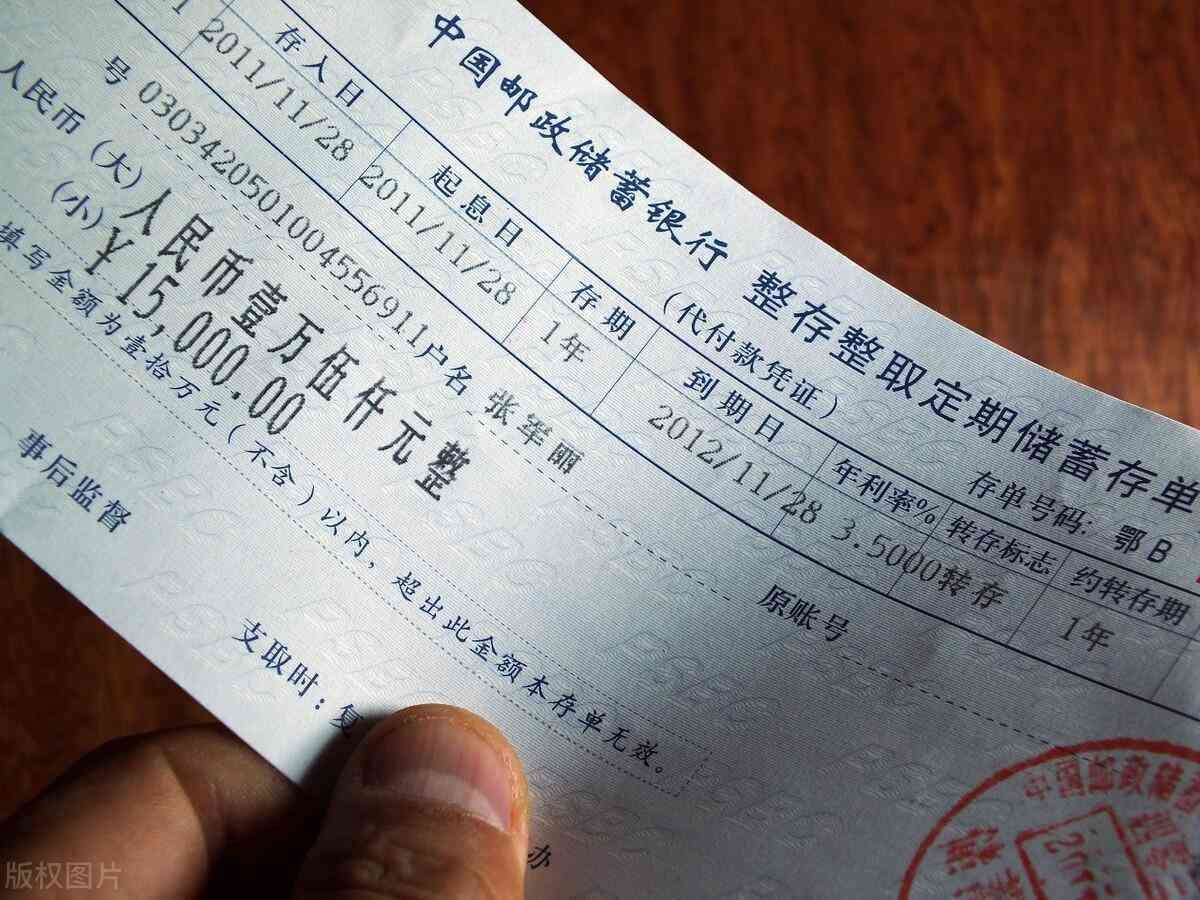 中国邮政储蓄银行 整存整取定期储蓄存单
(代付款凭证) 存单号码: 鄂B
存入日 起息日 存期 到期日 年利率% 转存标志 约转存期
2011/11/28 2011/11/28 1年 2012/11/28 3.5000 转存 1年
号 030342050100455691 1 户名 张军丽 原账号
人民币 (大) 人民币壹万伍仟元整
(小) ¥ 15,000.00
填写金额为壹拾万元(不含)以内,超出此金额本存单无效。
事后监督
支取时: 复
办
中国邮政储
版权图片